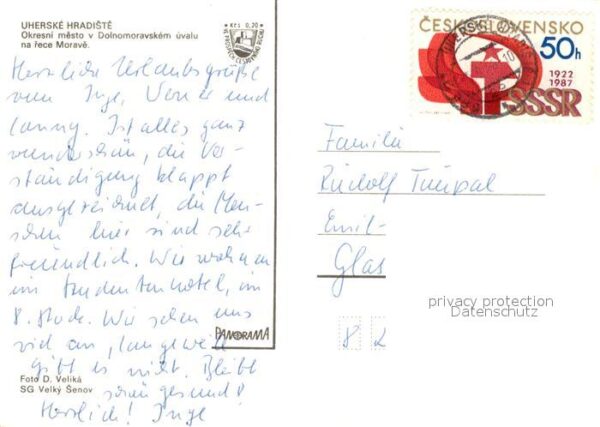 UHERSKÉ HRADIŠTĚ
Okresní město v Dolnomoravském úvalu
na řece Moravě.
Kčs 0,20
Herzliche Urlaubsgrüße
von Inge, und
Ist alles ganz
wunderschön, die Ver-
ständigung klappt
ausgezeichnet, die Men-
schen hier sind sehr
freundlich. Wir wohnen
im Studentenhotel, im
8. Stock. Wir sehen uns
viel an, langweil
gibt es nicht. Bleibt
schön gesund!
Herzlich! Inge
PANORAMA
Foto D. Veliká
SG Velký Šenov
ČESKOSLOVENSKO
50h
1922
1987
SSSR
Familie
Rudolf
Emil-
Glas
privacy protection
Datenschutz